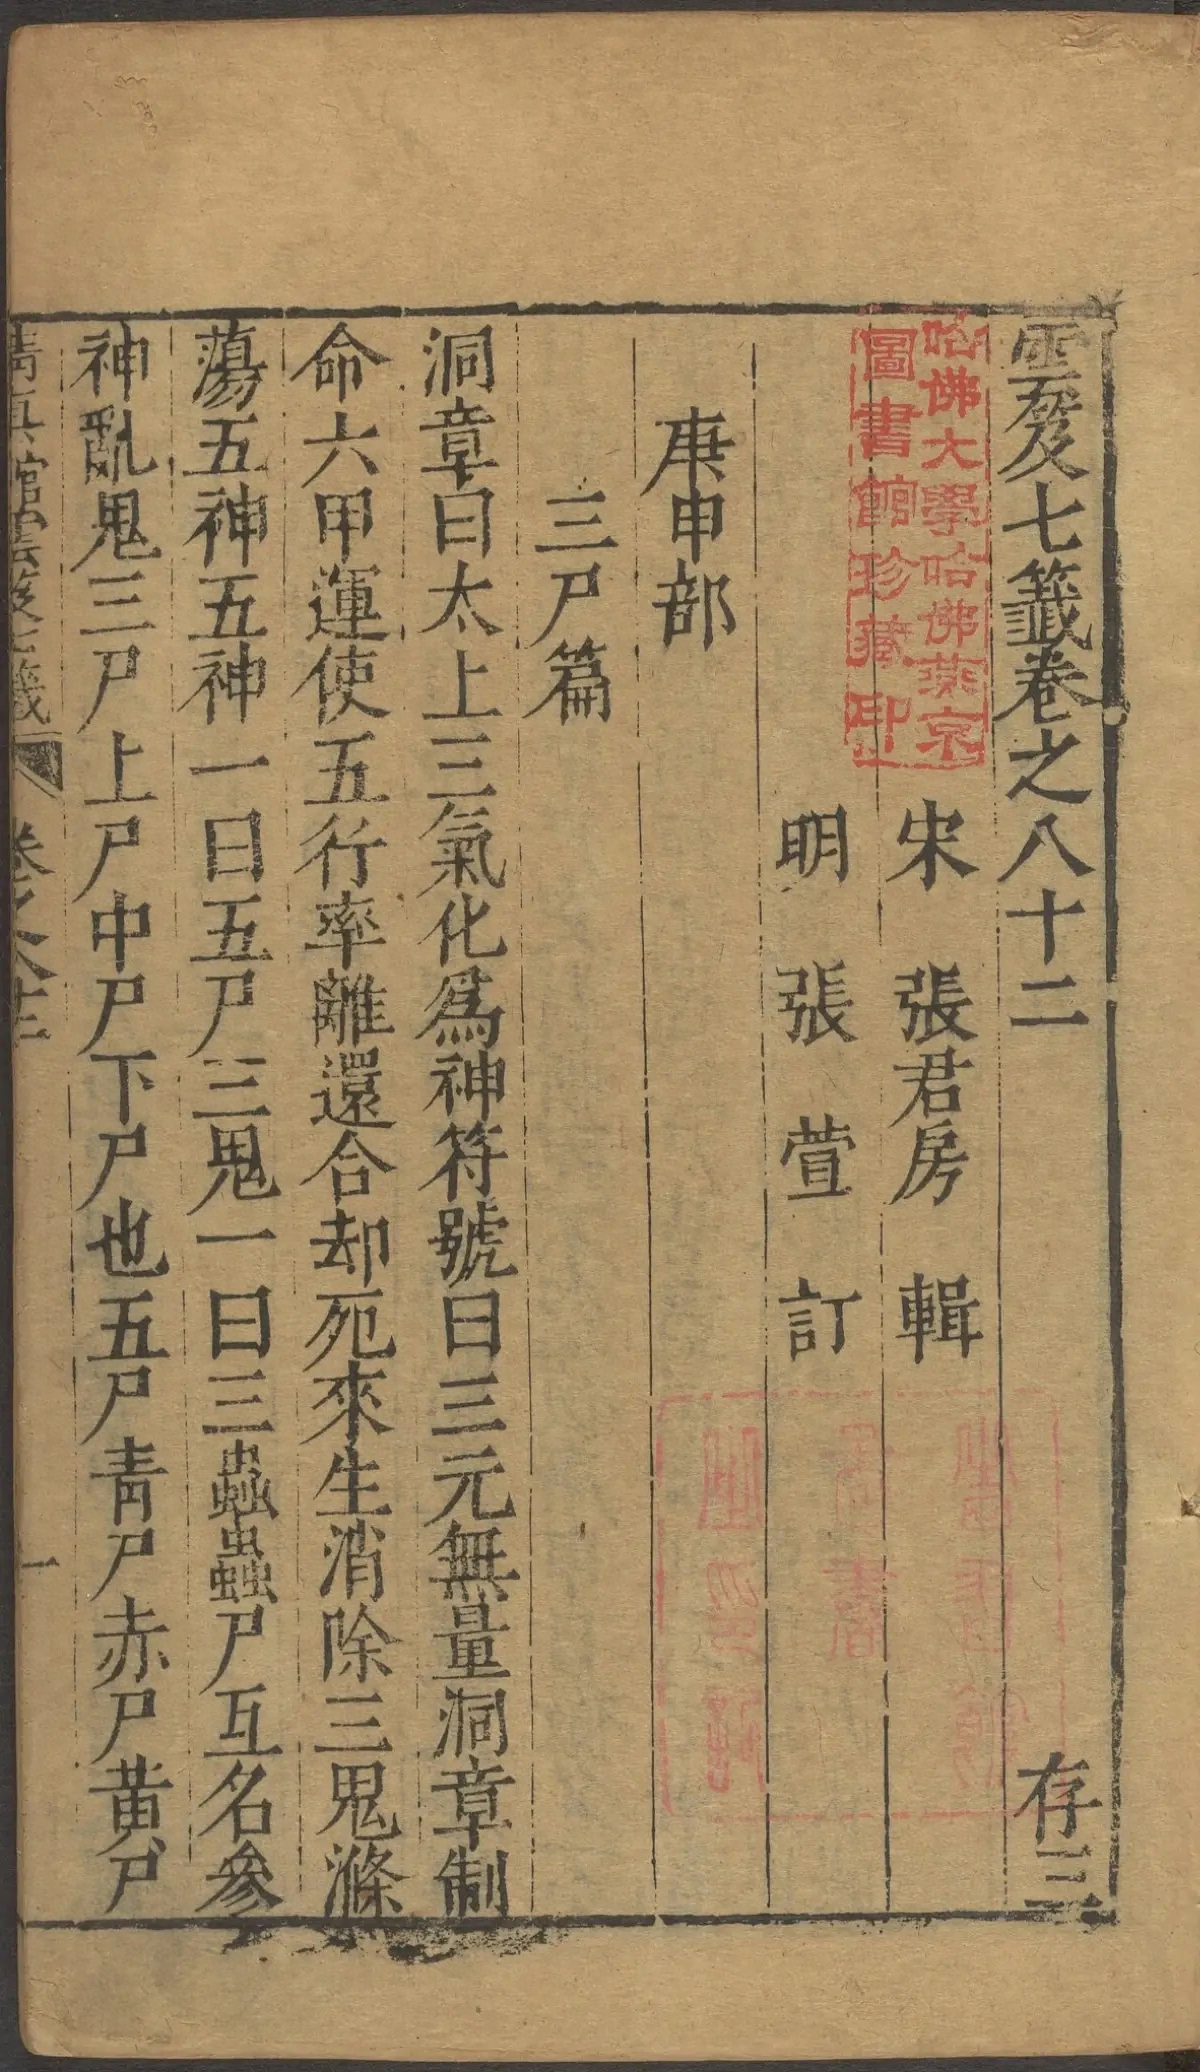 雲笈七籤卷之八十二 存三
宋 張君房 輯
明 張萱 訂
哈佛大學哈佛燕京
圖書館珍藏印
庚申部
三尸篇
洞章曰太上三氣化爲神符號曰三元無量洞章制
命六甲運使五行率離還合却死來生消除三鬼滌
蕩五神五神一曰五尸三鬼一曰三蟲蟲尸互名參
神亂鬼三尸上尸中尸下尸也五尸青尸赤尸黄尸
清真館雲笈七籤 卷之八十二 一